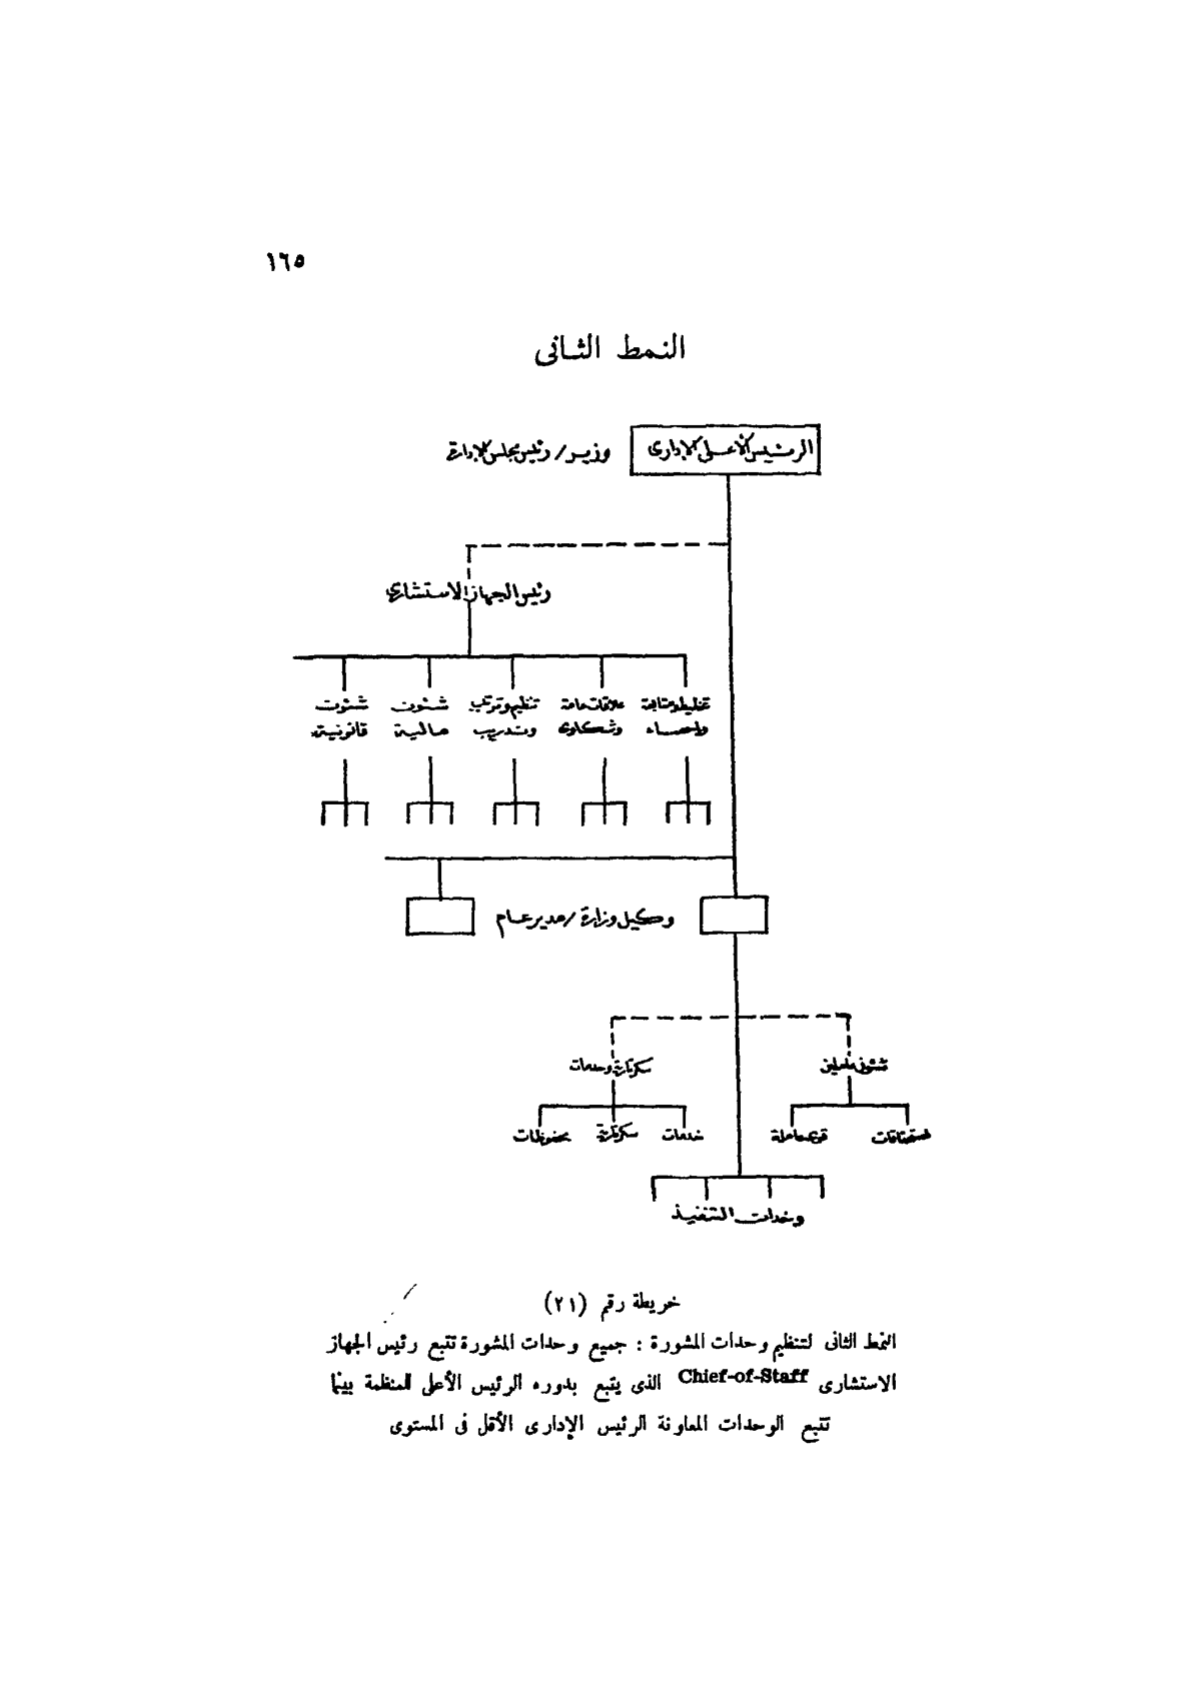 ١٦٥
النمط الثانى
الرئيس الأعلى الإدارى
وزير / رئيس مجلس الإدارة
رئيس الجهاز الاستشارى
تخطيط ومتابعة
وإحصاء
علاقات عامة
وشكاوى
تنظيم وترتيب
وتدريب
شئون
مالية
شئون
قانونية
وكيل وزارة / مدير عام
شئون عاملين
سكرتارية وخدمات
استحقاقات
قوى عاملة
خدمات
سكرتارية
محفوظات
وحدات التنفيذ
خريطة رقم (٢١)
النمط الثانى لتنظيم وحدات المشورة : جميع وحدات المشورة تتبع رئيس الجهاز
الاستشارى Chief-of-Staff الذى يتبع بدوره الرئيس الأعلى للمنظمة بينما
تتبع الوحدات المعاونة الرئيس الإدارى الأقل فى المستوى